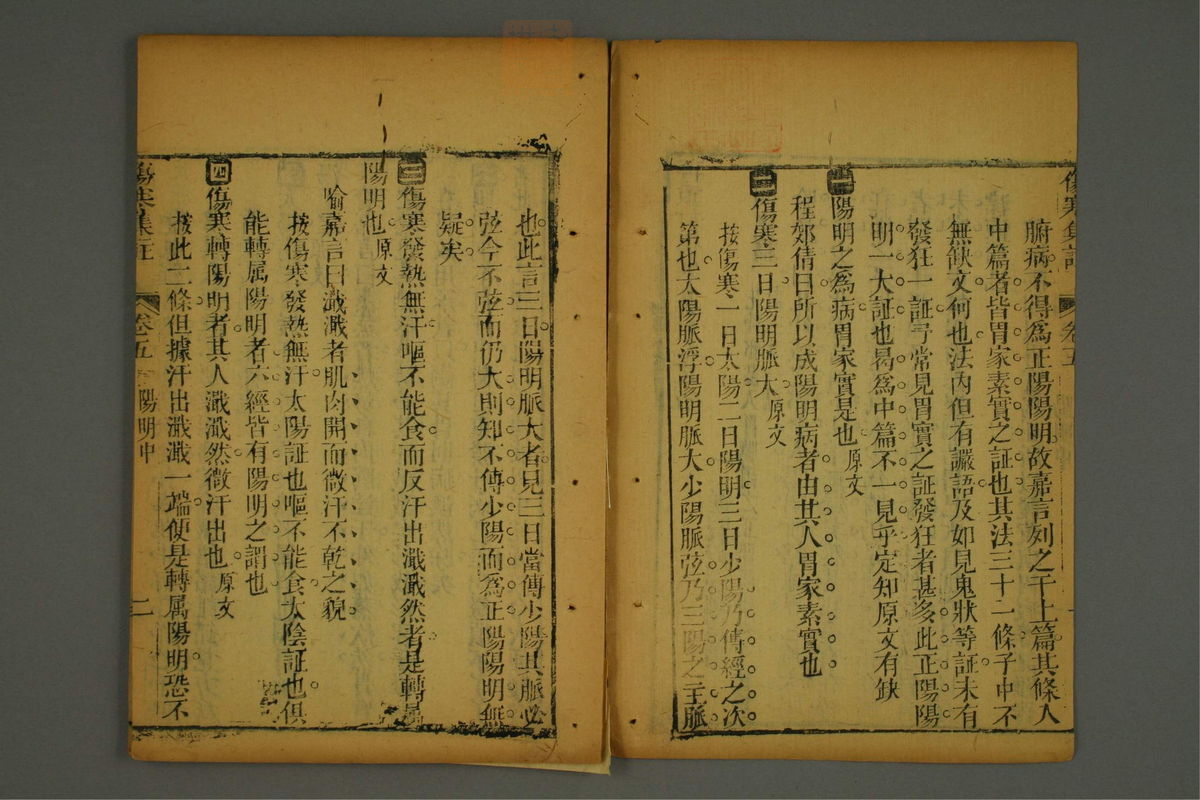 傷寒集註 卷五
腑病不得為正陽陽明故嘉言列之于上篇其條入
中篇者皆胃家素實之証也其法三十二條子中不
無缺文何也法內但有讝語及如見鬼狀等証未有
發狂一証尋常見胃實之証發狂者甚多此正陽陽
明一大証也曷為中篇不一見乎定知原文有缺
一陽明之為病胃家實是也原文
程郊倩曰所以成陽明病者由其人胃家素實也
二傷寒三日陽明脈大原文
按傷寒一日太陽二日陽明三日少陽乃傳經之次
第也太陽脈浮陽明脈大少陽脈弦乃三陽之主脈
也此言三日陽明脈大者見三日當傳少陽其脈必
弦今不弦而仍大則知不傳少陽而為正陽陽明無
疑矣
三傷寒發熱無汗嘔不能食而反汗出濈濈然者是轉屬
陽明也原文
喻嘉言曰濈濈者肌肉開而微汗不乾之貌
按傷寒發熱無汗太陽証也嘔不能食太陰証也俱
能轉属陽明者六經皆有陽明之謂也
四傷寒轉陽明者其人濈濈然微汗出也原文
按此二條但據汗出濈濈一端便是轉属陽明恐不
傷寒集註 卷五 陽明中 二